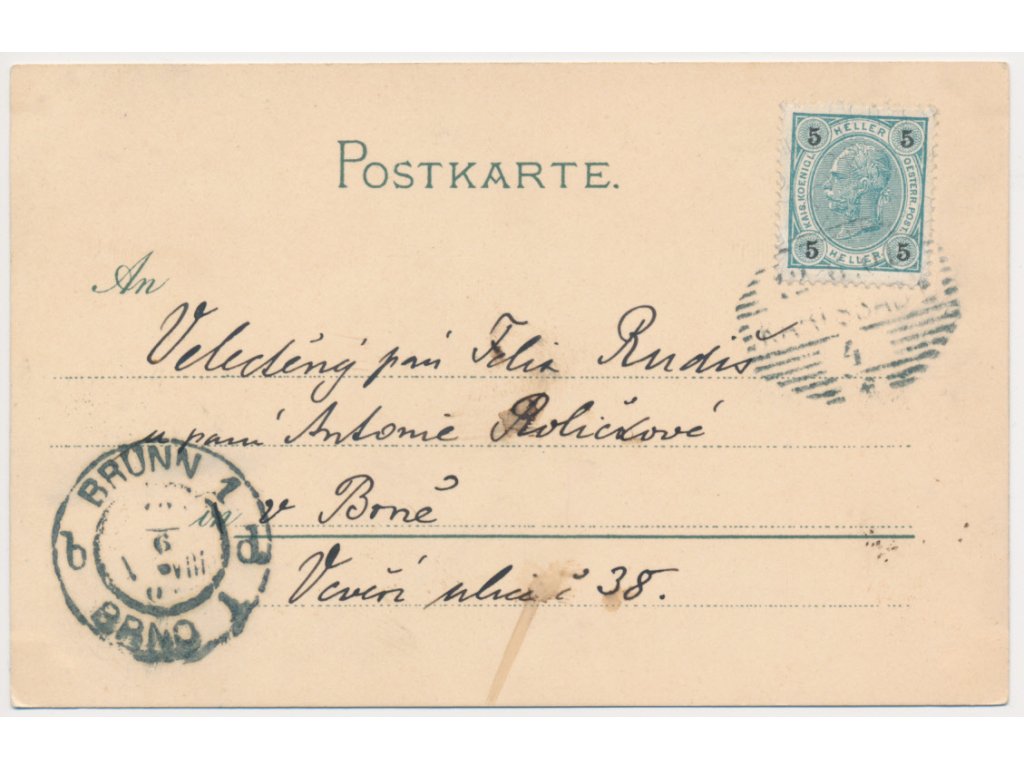 POSTKARTE.
5 HELLER 5
KAIS. KOENIGL. OESTERR. POST
5 HELLER 5
4
An
Velectěný pán Felix Rudiš
u paní Antonie Roličkové
in v Brně
Veveří ulice č 38.
BRÜNN 1
6
VIII
BRNO